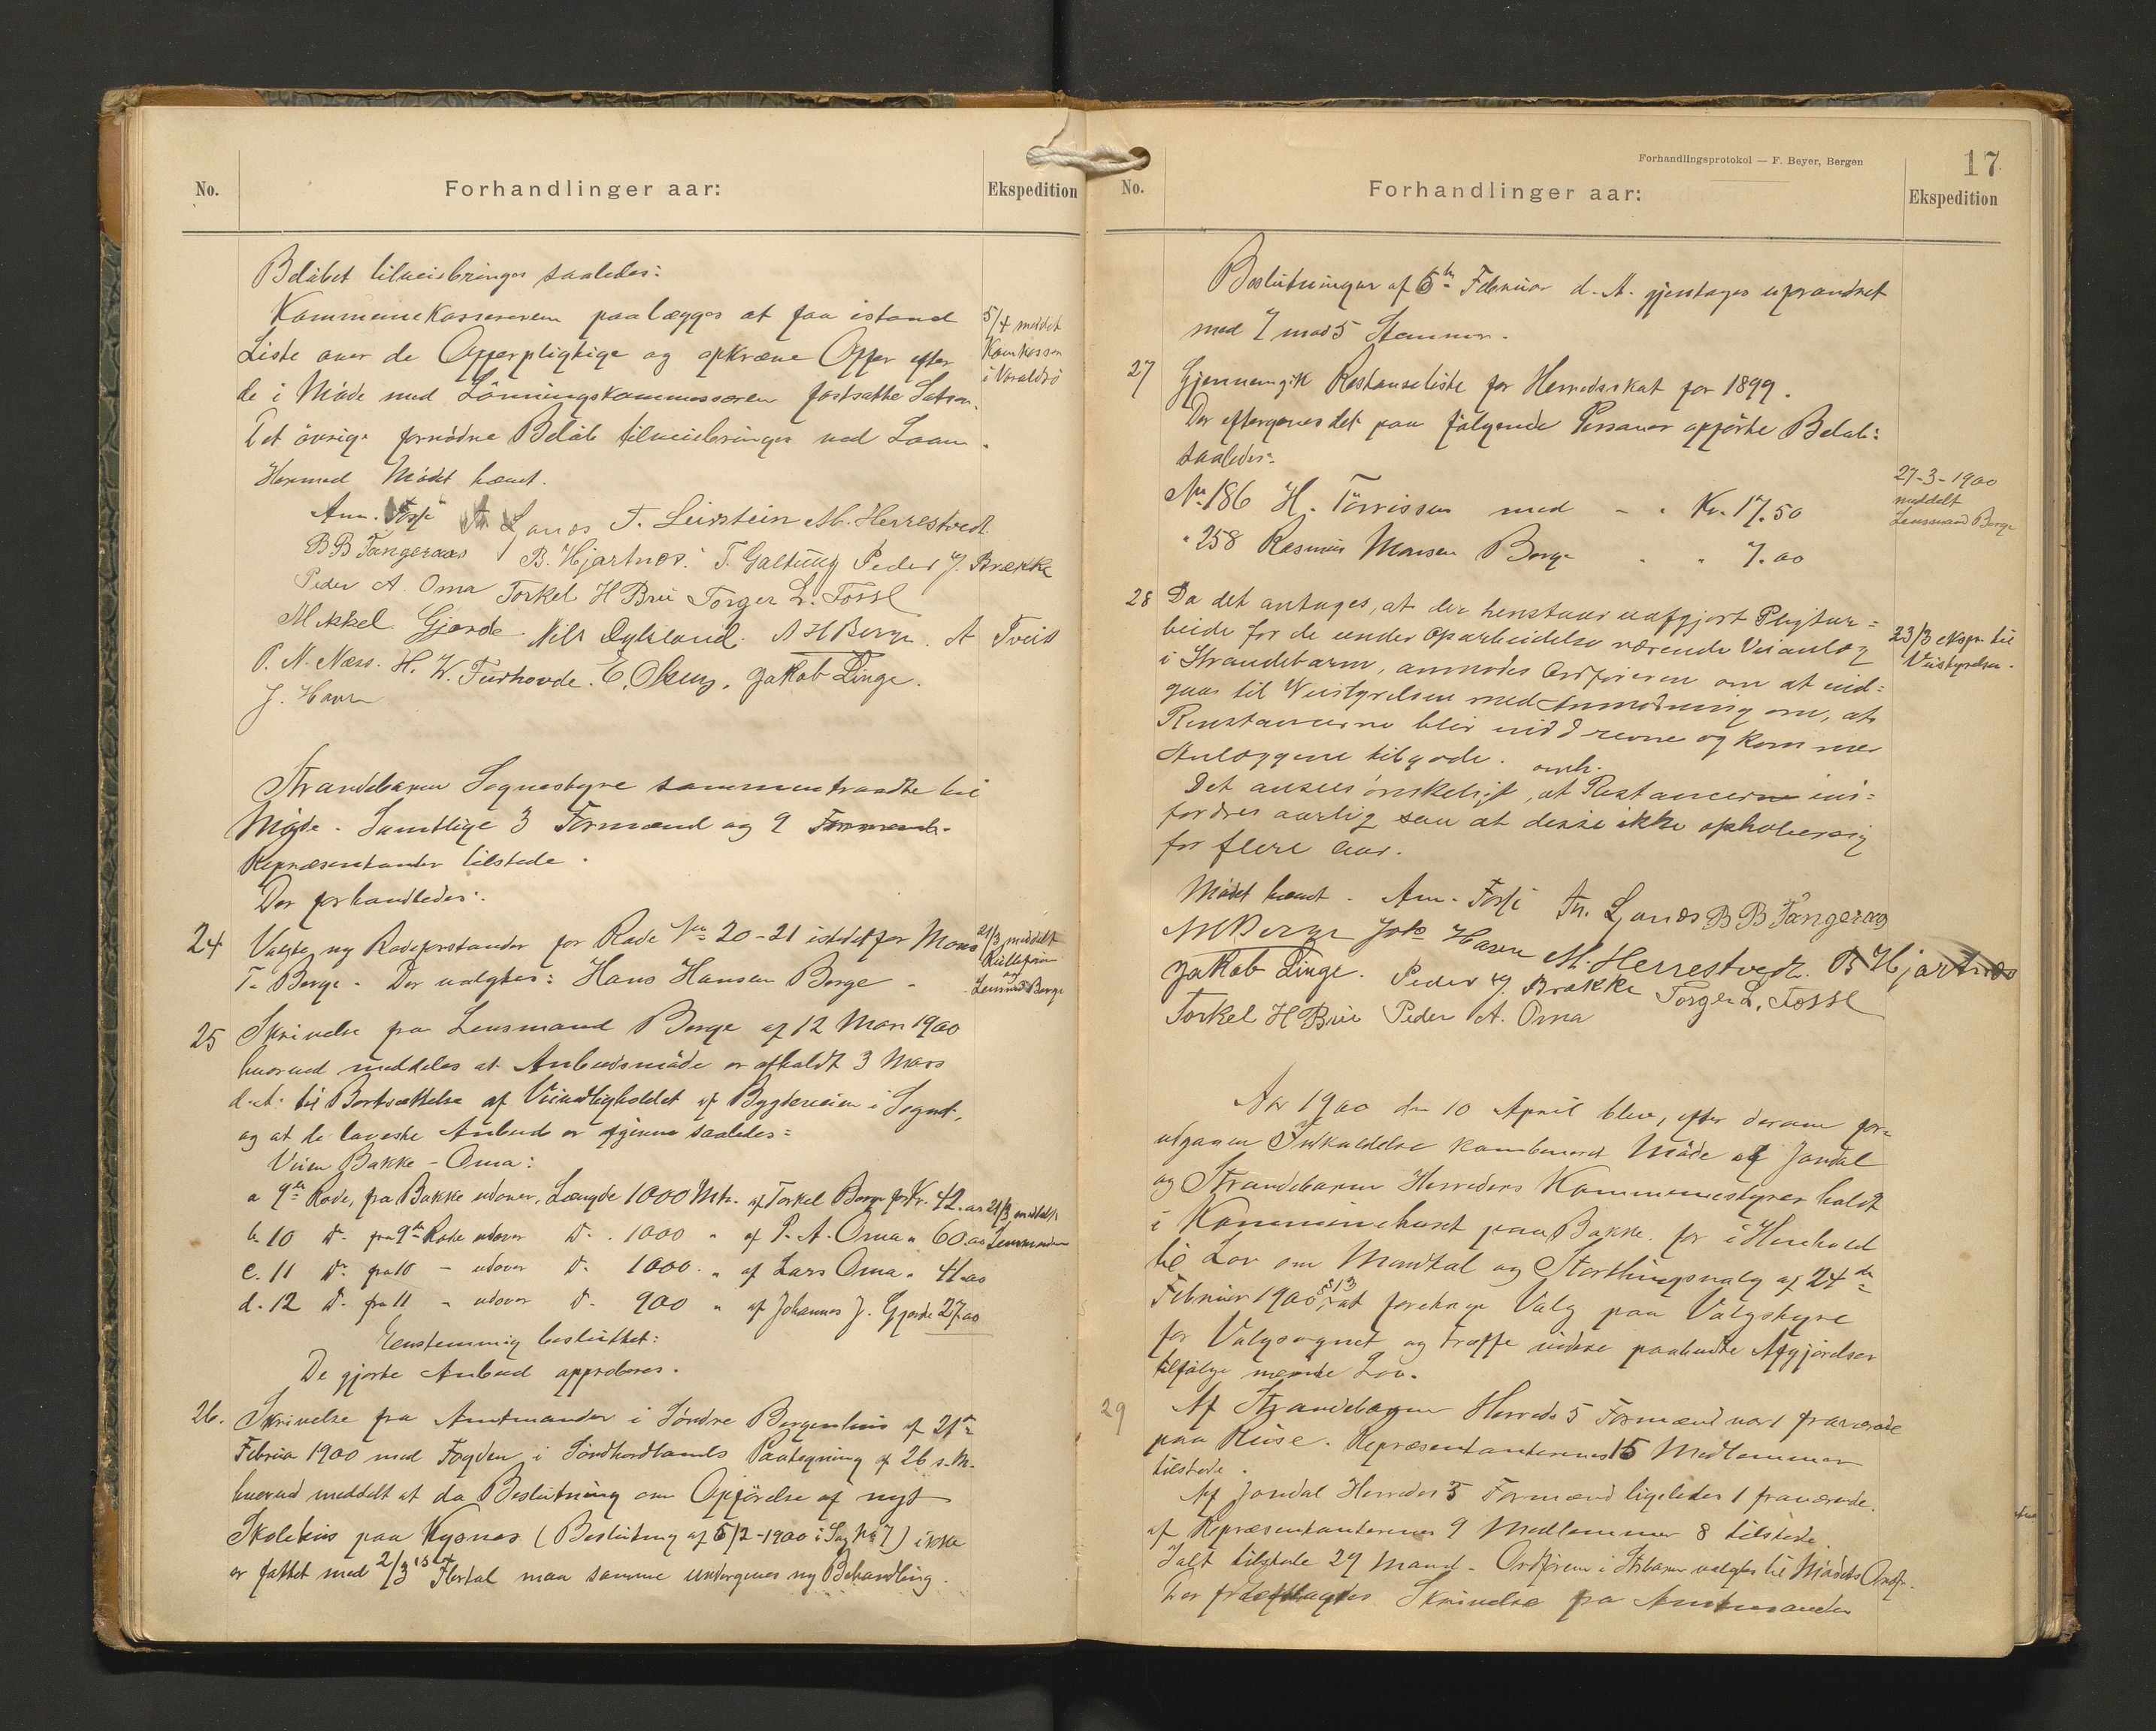 No. Forhandlinger aar: Ekspedition
Beløbet tilveiebringes saaledes:
Kommunekassereren paalægges at faa istand
Liste over de Offerpligtige og opkræve Offer efter
de i Møde med Lønningskommissionen fastsatte Satser.
Det øvrige fornødne Beløb tilveiebringes ved Laan.
5/4 meddelt
Kom.kasser
i Varaldsø
Hermed Mødet hævet.
Am. Fosse Th. Ljones T. Leirstein M. Herrestvedt
B B Tangeraas B. Hjartnes. T. Galtung Peder J. Brække
Peder A. Oma Torkel H Brii Torger L. Fossl
Mikkel Gjerde. Nils Dysland. N H Berge. A Tveit
P. N. Næss. H. W. Turhovde. E. Olsen. Jakob Linge.
J. Haven
Strandebarm Sognestyre sammentraadte til
Møde. Samtlige 3 Formænd og 9
Repræsentanter tilstede.
Der forhandledes:
24 Valgte ny Rodeforstander for Rode No 20-21 istedetfor Mons
T. Berge. Der valgtes: Hans Hansen Berge.
21/3 meddelt
og
Lensmd Berge
25 Skrivelse fra Lensmand Berge af 12 Mars 1900
hvorved meddeles at Anbudsmøde er afholdt 3 Mars
d.A. til Bortsættelse af Veivedligholdet af Bygdeveien i Sognet,
og at de laveste Anbud er afgivne saaledes:
Veien Bakke - Oma:
a 9de Rode, fra Bakke udover, Længde 1000 Mtr. af Torkel Berge for Kr. 42.00
b. 10 Do. fra 9de Rode udover Do. 1000 " af P. A. Oma " 60.00
c. 11 Do. fra 10 - udover Do. 1000 " af Lars Oma " 41.00
d. 12 Do. fra 11 - udover Do. 900 " af Johannes J. Gjerde 27.00
21/3 meddelt
Lensmanden
Eenstemmig besluttet:
De gjorte Anbud approberes.
26. Skrivelse fra Amtmanden i Søndre Bergenhus af 21de
Februar 1900 med Fogden i Søndhordlands Paategning af 26 s.M.
hvorved meddelt at da Beslutning om Opførelse af nyt
Skolehus paa Kysnes (Beslutning af 5/2-1900 i Sag No 7) ikke
er fattet med 2/3 Flertal maa samme undergives ny Behandling.
Forhandlingsprotokol — F. Beyer, Bergen
17
No. Forhandlinger aar: Ekspedition
Beslutningen af 5te Februar d.A. gjentages uforandret
med 7 mod 5 Stemmer.
27 Gjennemgik Restanseliste for Herredsskat for 1899.
Der eftergaves det paa følgende Personer opførte Beløb:
saaledes:
No. 186 H. Tørrissen med - " Kr. 17.50
" 258 Rasmus Monsen Berge " " 7.00
27-3-1900
meddelt
Lensmand Berge
28 Da det antages, at der henstaar uafgjort Pligtar=
beide for de under Oparbeidelse værende Veianlæg
i Strandebarm, anmodes Ordføreren om at ind=
gaa til Veistyrelsen med Anmodning om, at
Restancerne blir inddrevne og kommer
Anlæggene tilgode.
23/3 eksp. til
Veistyrelsen.
Det ansees ønskeligt, at Restancerne ind=
fordres aarlig saa at disse ikke ophober sig
for flere Aar.
Mødet hævet. Am. Fosse Th. Ljones B B Tangeraas
N H Berge Johs Haven M. Herrestvedt. B Hjartnes
Jakob Linge. Peder J. Brække Torger L. Fossl
Torkel H Brii Peder A. Oma
Aar 1900 den 10 April blev, efter derom for=
udgaaen Indkaldelse kombineret Møde af Jondal
og Strandebarm Herreders Kommunestyrer holdt
i Kommunehuset paa Bakke for i Henhold
til Lov om Mandtal og Storthingsvalg af 24de
Februar 1900 § 13, at foretage Valg paa Valgstyre
for Valgsognet og træffe videre paabudte Afgjørelser
tilfølge nævnte Lov.
29 Af Strandebarm Herreds 5 Formænd var 1 fraværende
paa Reise. Repræsentanternes 15 Medlemmer
tilstede.
Af Jondal Herreds 3 Formænd ligeledes 1 fraværende.
af Repræsentanternes 9 Medlemmer 8 tilstede.
Ialt tilstede 29 Mand. Ordføreren i Stbarm valgtes til Mødets Ordf.
Der fremlagdes Skrivelse fra Amtmanden